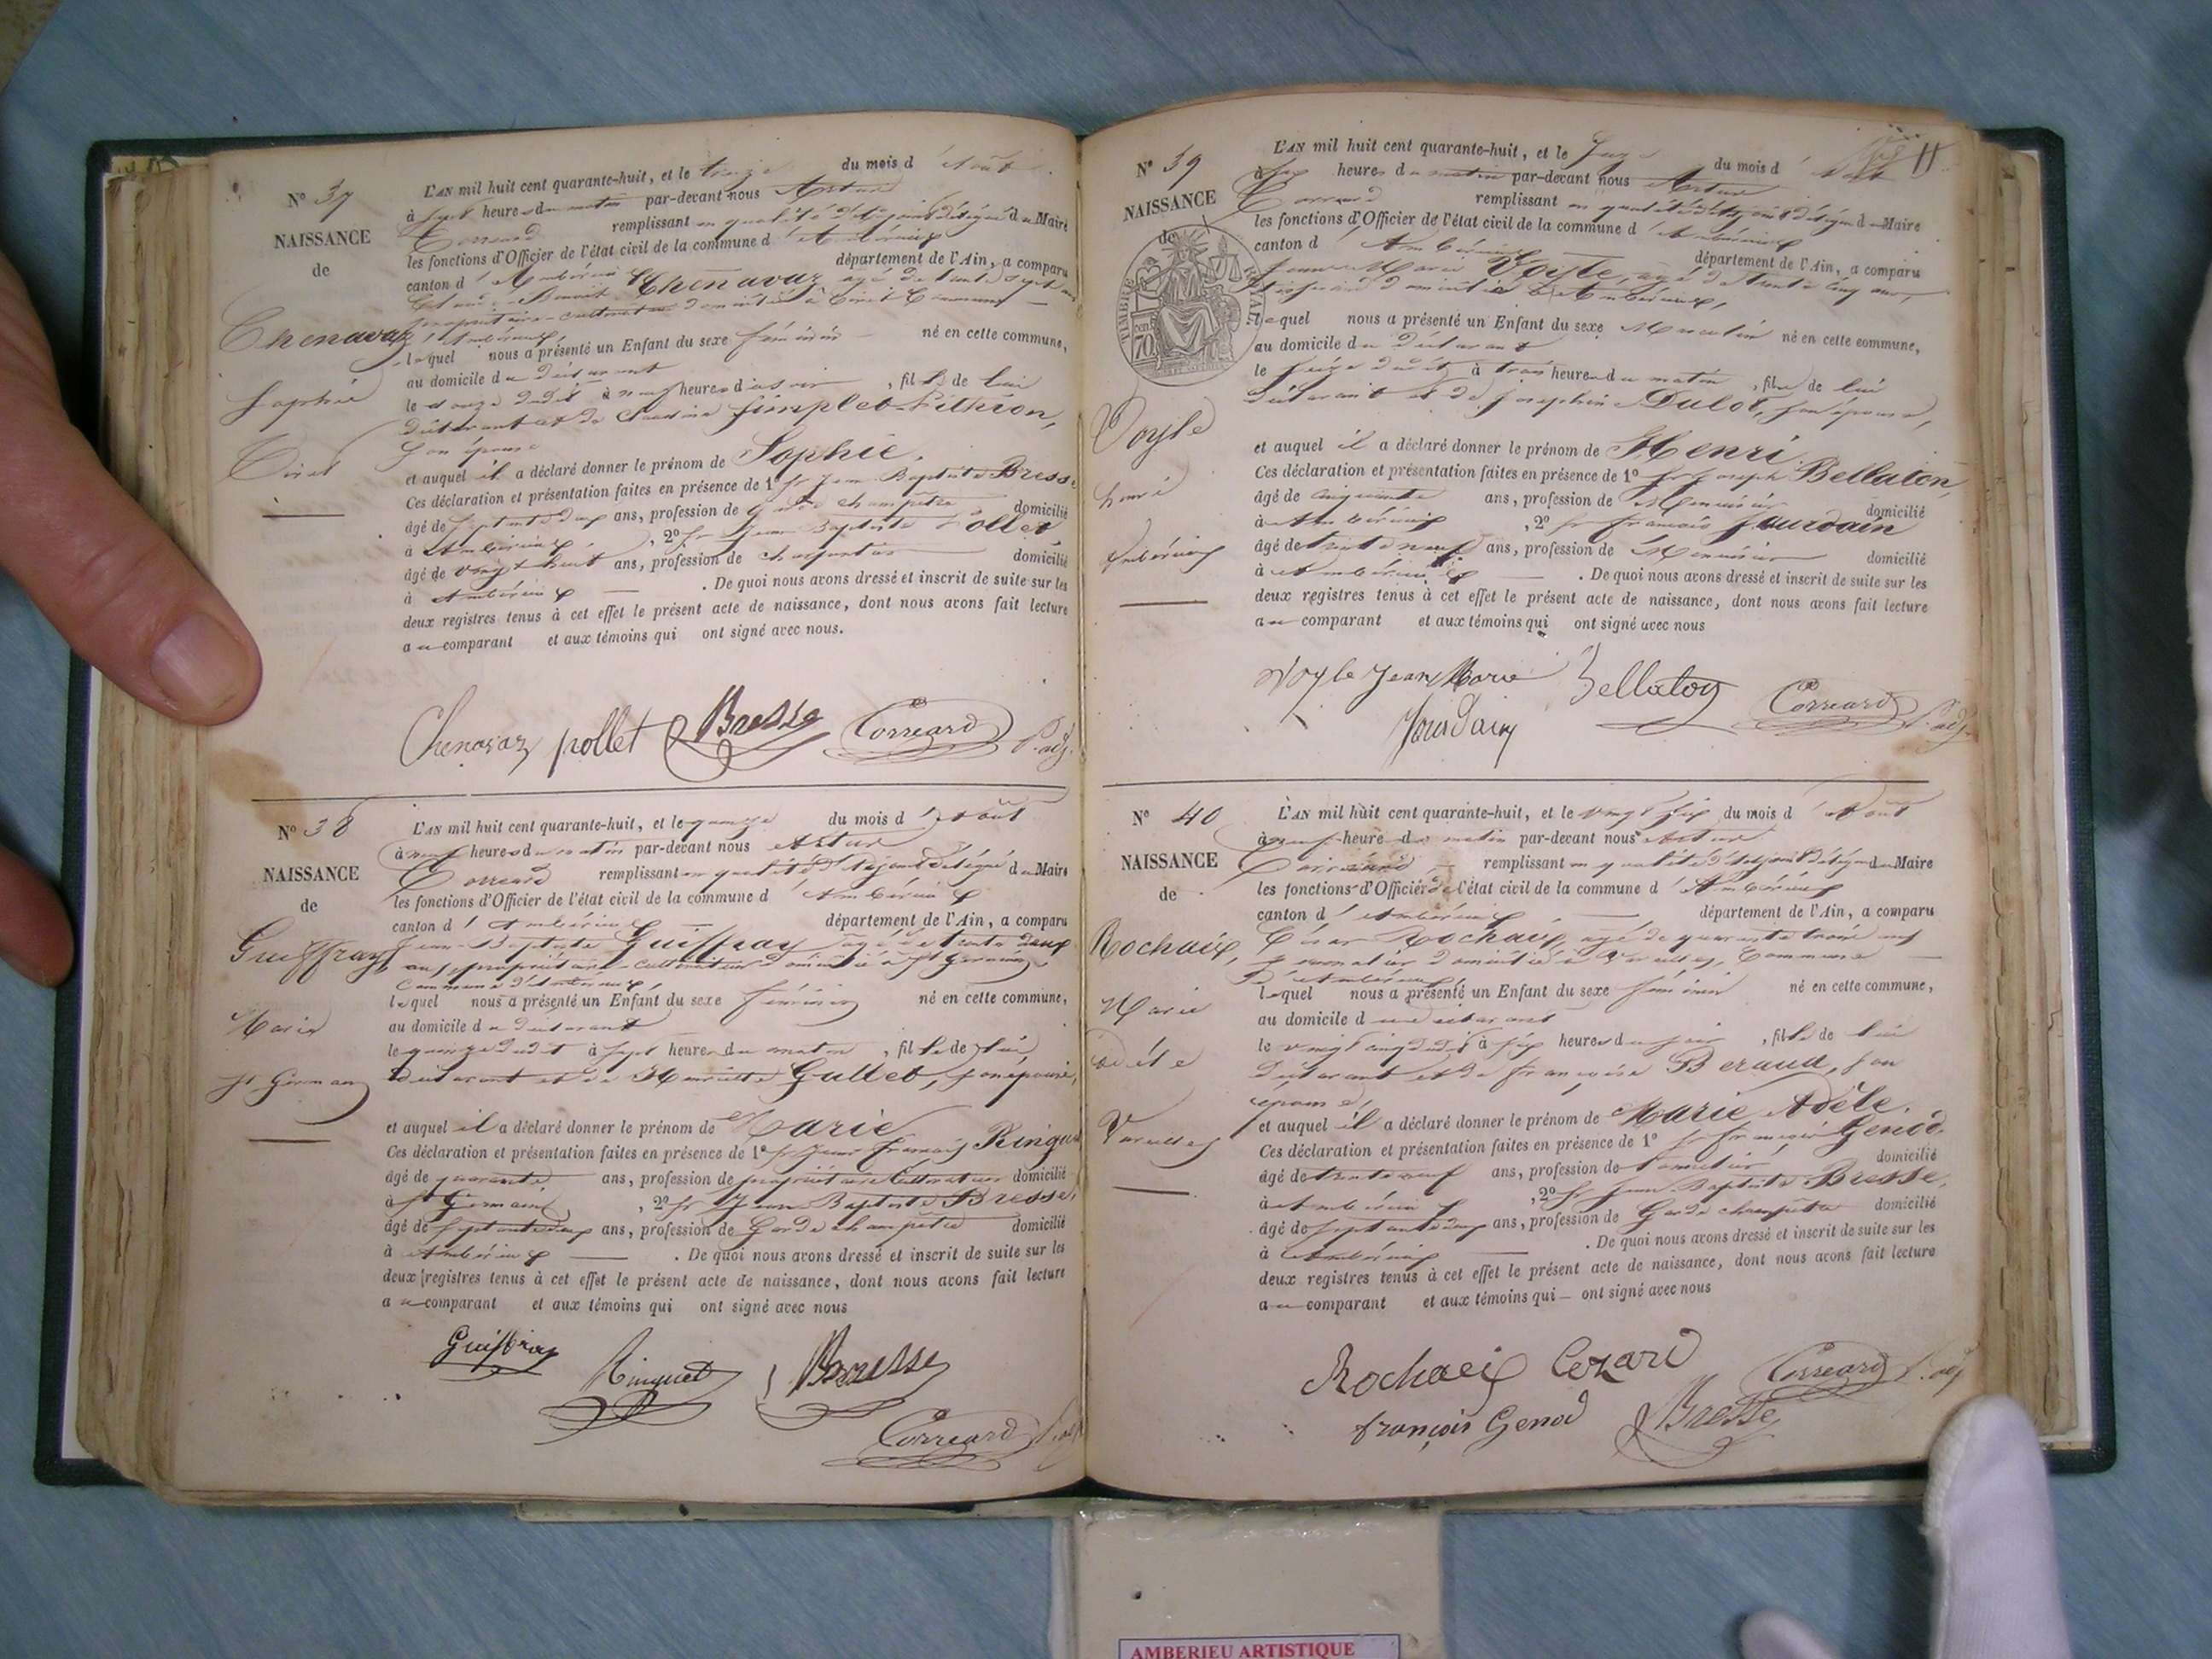 N° 37
NAISSANCE
de
Chenavaz
Sophie
Tiret
L'AN mil huit cent quarante-huit, et le treize du mois d'Août
à sept heures du matin par-devant nous Artur
Correard remplissant en qualité d'adjoint délégué du Maire
les fonctions d'Officier de l'état civil de la commune d'Ambérieux
canton d'Ambérieux département de l'Ain, a comparu
Benoit Chenavaz, agé de trente sept ans
propriétaire-cultivateur domicilié à Tiret Commune
d'Ambérieux
lequel nous a présenté un Enfant du sexe féminin né en cette commune,
au domicile du déclarant
le onze dudit à neuf heures du soir, fille de lui
déclarant et de Claudine Simplet-Fithion,
son épouse
et auquel il a déclaré donner le prénom de Sophie.
Ces déclaration et présentation faites en présence de 1° sr Jean Baptiste Bresse
âgé de septante deux ans, profession de Garde champêtre domicilié
à Ambérieux, 2° sr Jean Baptiste Pollet
âgé de vingt huit ans, profession de charpentier domicilié
à Ambérieux. De quoi nous avons dressé et inscrit de suite sur les
deux registres tenus à cet effet le présent acte de naissance, dont nous avons fait lecture
au comparant et aux témoins qui ont signé avec nous.
Chenavaz pollet Bresse Correard P. adj.
N° 38
NAISSANCE
de
Guiffray
Marie
St Germain
L'AN mil huit cent quarante-huit, et le quinze du mois d'Août
à neuf heures du matin par-devant nous Artur
Correard remplissant en qualité d'Adjoint délégué du Maire
les fonctions d'Officier de l'état civil de la commune d'Ambérieux
canton d'Ambérieux département de l'Ain, a comparu
Jean-Baptiste Guiffray, agé de trente deux
ans, propriétaire-cultivateur domicilié à St Germain,
Commune d'Ambérieux
lequel nous a présenté un Enfant du sexe féminin né en cette commune,
au domicile du déclarant
le quinze dudit à sept heures du matin, fille de lui
déclarant et de Henriette Gullet, son épouse,
et auquel il a déclaré donner le prénom de Marie
Ces déclaration et présentation faites en présence de 1° sr Jean François Ringuet
âgé de quarante ans, profession de propriétaire Cultivateur domicilié
à St Germain, 2° sr Jean Baptiste Bresse,
âgé de septante deux ans, profession de Garde champêtre domicilié
à Ambérieux. De quoi nous avons dressé et inscrit de suite sur les
deux registres tenus à cet effet le présent acte de naissance, dont nous avons fait lecture
au comparant et aux témoins qui ont signé avec nous
Guiffray Ringuet Bresse
Correard P. adj
11
N° 39
NAISSANCE
de
TIMBRE ROYAL
70 cent
Voyle
henri
Ambérieux
L'AN mil huit cent quarante-huit, et le seize du mois d'Août
à six heures du matin par-devant nous Artur
Correard remplissant en qualité d'adjoint délégué du Maire
les fonctions d'Officier de l'état civil de la commune d'Ambérieux
canton d'Ambérieux département de l'Ain, a comparu
Jean-Marie Voyle, agé de trente cinq ans,
domicilié à Ambérieux,
lequel nous a présenté un Enfant du sexe Masculin né en cette commune,
au domicile du déclarant
le seize dudit à trois heures du matin, fils de lui
déclarant et de Josephine Dulot, son épouse,
et auquel il a déclaré donner le prénom de Henri
Ces déclaration et présentation faites en présence de 1° sr Joseph Bellaton,
âgé de cinquante ans, profession de Menuisier domicilié
à Ambérieux, 2° sr François Jourdain
âgé de trente neuf ans, profession de Menuisier domicilié
à Ambérieux. De quoi nous avons dressé et inscrit de suite sur les
deux registres tenus à cet effet le présent acte de naissance, dont nous avons fait lecture
au comparant et aux témoins qui ont signé avec nous
Voyle Jean Marie Bellaton Correard P. adj.
Jourdain
N° 40
NAISSANCE
de
Rochaix,
Marie
Adèle
Vareilles
L'AN mil huit cent quarante-huit, et le vingt six du mois d'Août
à neuf heure du matin par-devant nous Artur
Correard remplissant en qualité d'Adjoint délégué du Maire
les fonctions d'Officier de l'état civil de la commune d'Ambérieux
canton d'Ambérieux département de l'Ain, a comparu
César Rochaix, agé de quarante trois ans
journalier domicilié à Vareilles, Commune
d'Ambérieux
lequel nous a présenté un Enfant du sexe féminin né en cette commune,
au domicile du déclarant
le vingt cinq dudit à six heures du soir, fille de lui
déclarant et de françoise Beraud, son
épouse,
et auquel il a déclaré donner le prénom de Marie Adèle.
Ces déclaration et présentation faites en présence de 1° sr françois Genod,
âgé de trente neuf ans, profession de tonnelier domicilié
à Ambérieux, 2° sr Jean-Baptiste Bresse,
âgé de septante deux ans, profession de Garde champêtre domicilié
à Ambérieux. De quoi nous avons dressé et inscrit de suite sur les
deux registres tenus à cet effet le présent acte de naissance, dont nous avons fait lecture
au comparant et aux témoins qui ont signé avec nous
Rochaix Cezard Correard P. adj
françois Genod Bresse
AMBERIEU ARTISTIQUE